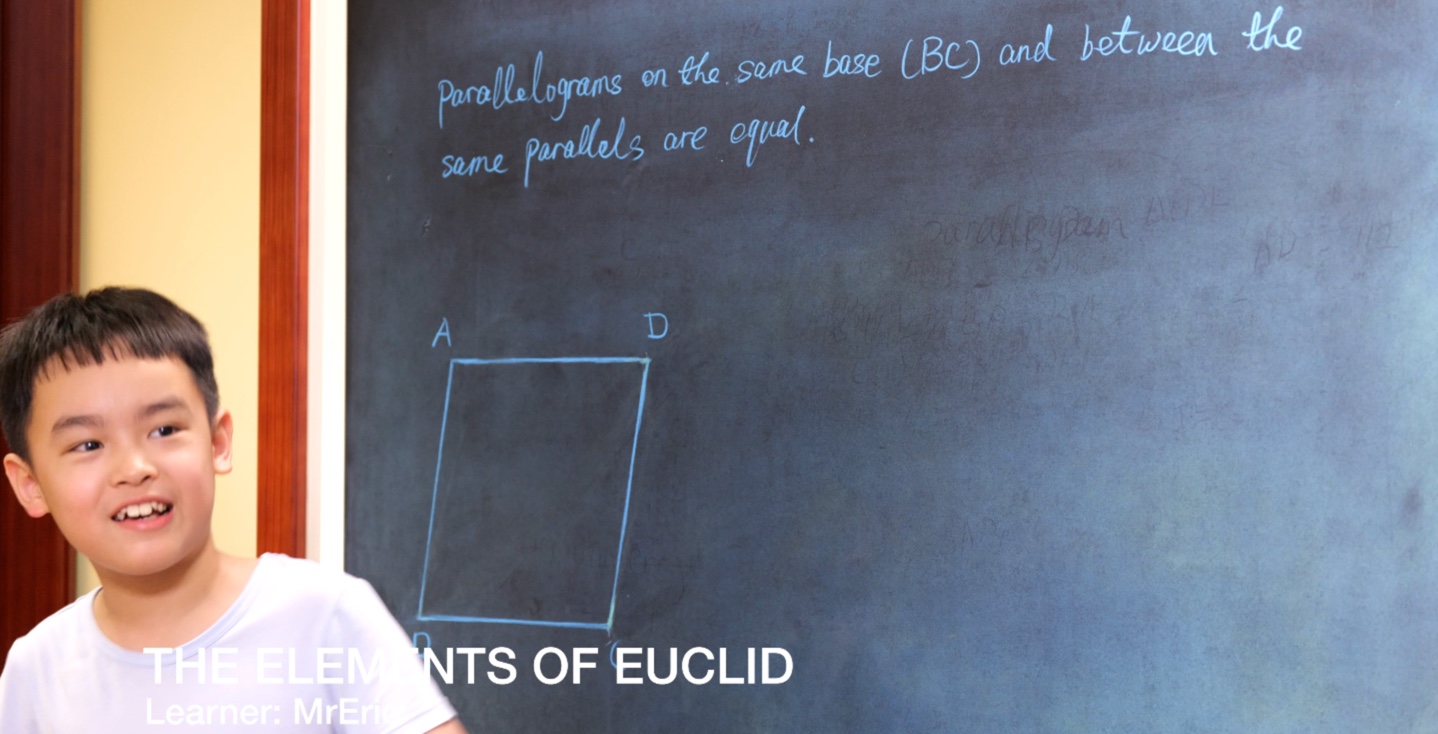 Parallelograms on the same base (BC) and between the
same parallels are equal.
A D
THE ELEMENTS OF EUCLID
Learner: MrEric